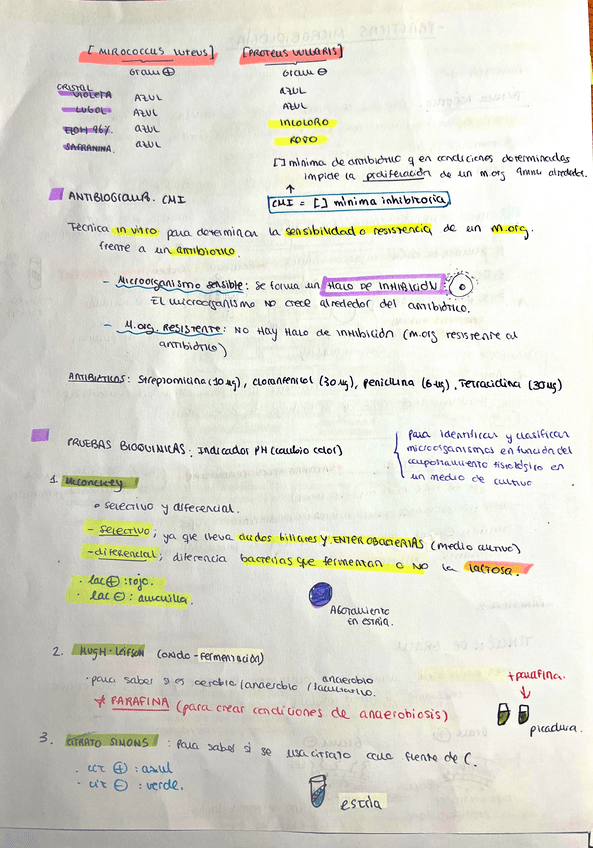 [MIROCOCCUS LUTEUS] [PROTEUS VULLARIS]
Gram ⊕ Gram ⊖
CRISTAL VIOLETA AZUL AZUL
LUGOL AZUL AZUL
ETOH 96%. AZUL INCOLORO
SAFRANINA. AZUL ROJO
[ ] mínima de antibiótico q en condiciones determinadas
impide la proliferación de un m.org alrededor.
↑
CMI = [ ] mínima inhibitoria
ANTIBIOGRAMA. CMI
Técnica in vitro para determinar la sensibilidad o resistencia de un m.org.
frente a un antibiótico.
- Microorganismo sensible: Se forma un HALO DE INHIBICIÓN
El microorganismo NO crece alrededor del antibiótico.
- M.org. RESISTENTE: NO HAY HALO DE INHIBICIÓN (m.org resistente al
antibiótico)
ANTIBIÓTICOS: Streptomicina (10 µg), cloranfenicol (30 µg), penicilina (6 µg), Tetraciclina (30 µg)
PRUEBAS BIOQUINICAS. Indicador PH (cambio color)
Para identificar y clasificar
microorganismos en función del
comportamiento fisiológico en
un medio de cultivo
1. McConckey
• selectivo y diferencial.
- selectivo; ya que lleva ácidos biliares y ENTEROBACTERIAS (medio cultivo)
- diferencial; diferencia bacterias que fermentan o NO la lactosa.
· lac ⊕ : rojo.
· lac ⊖ : amarilla.
Agotamiento
en estría.
2. HUGH-Leifson (oxido-fermentación)
· para saber si es aerobio / anaerobio / anaerobio facultativo.
* PARAFINA (para crear condiciones de anaerobiosis)
+ parafina.
↓
picadura.
3. CITRATO SIMONS : Para saber si se usa citrato como fuente de C.
· cit ⊕ : azul
· cit ⊖ : verde.
estría